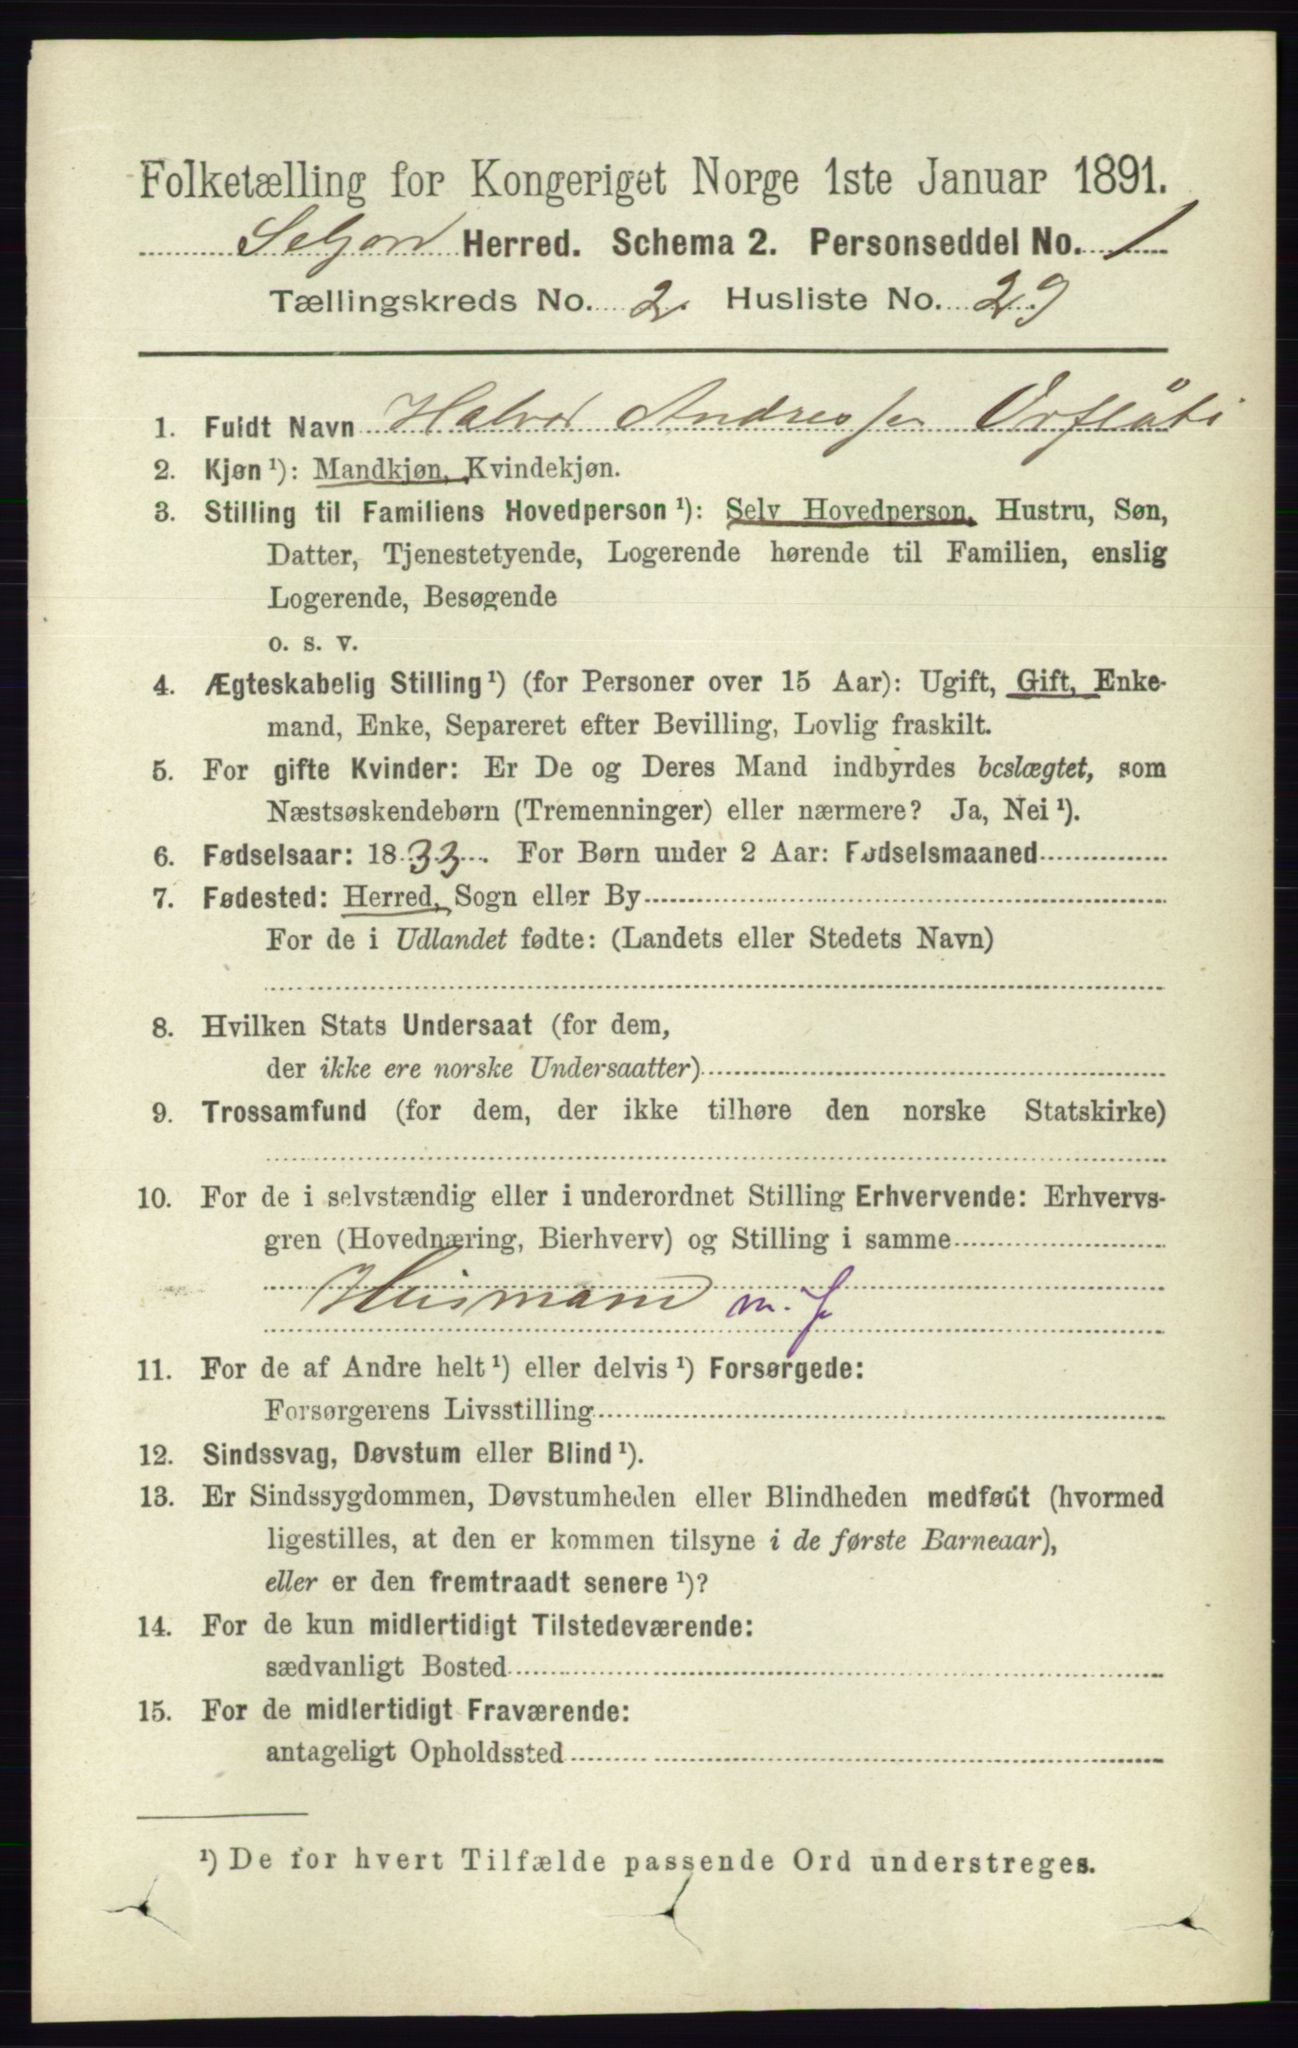 Folketælling for Kongeriget Norge 1ste Januar 1891.
Seljord Herred. Schema 2. Personseddel No. 1
Tællingskreds No. 2. Husliste No. 29
1. Fuldt Navn Halvor Andressen
2. Kjøn¹): Mandkjøn, Kvindekjøn.
3. Stilling til Familiens Hovedperson¹): Selv Hovedperson, Hustru, Søn,
Datter, Tjenestetyende, Logerende hørende til Familien, enslig
Logerende, Besøgende
o. s. v.
4. Ægteskabelig Stilling¹) (for Personer over 15 Aar): Ugift, Gift, Enke-
mand, Enke, Separeret efter Bevilling, Lovlig fraskilt.
5. For gifte Kvinder: Er De og Deres Mand indbyrdes beslægtet, som
Næstsøskendebørn (Tremenninger) eller nærmere? Ja, Nei¹).
6. Fødselsaar: 1833. For Børn under 2 Aar: Fødselsmaaned
7. Fødested: Herred, Sogn eller By
For de i Udlandet fødte: (Landets eller Stedets Navn)
8. Hvilken Stats Undersaat (for dem,
der ikke ere norske Undersaatter)
9. Trossamfund (for dem, der ikke tilhøre den norske Statskirke)
10. For de i selvstændig eller i underordnet Stilling Erhvervende: Erhvervs-
gren (Hovednæring, Bierhverv) og Stilling i samme
Husmand m. J
11. For de af Andre helt¹) eller delvis¹) Forsørgede:
Forsørgerens Livsstilling
12. Sindssvag, Døvstum eller Blind¹).
13. Er Sindssygdommen, Døvstumheden eller Blindheden medfødt (hvormed
ligestilles, at den er kommen tilsyne i de første Barneaar),
eller er den fremtraadt senere¹)?
14. For de kun midlertidigt Tilstedeværende:
sædvanligt Bosted
15. For de midlertidigt Fraværende:
antageligt Opholdssted
¹) De for hvert Tilfælde passende Ord understreges.